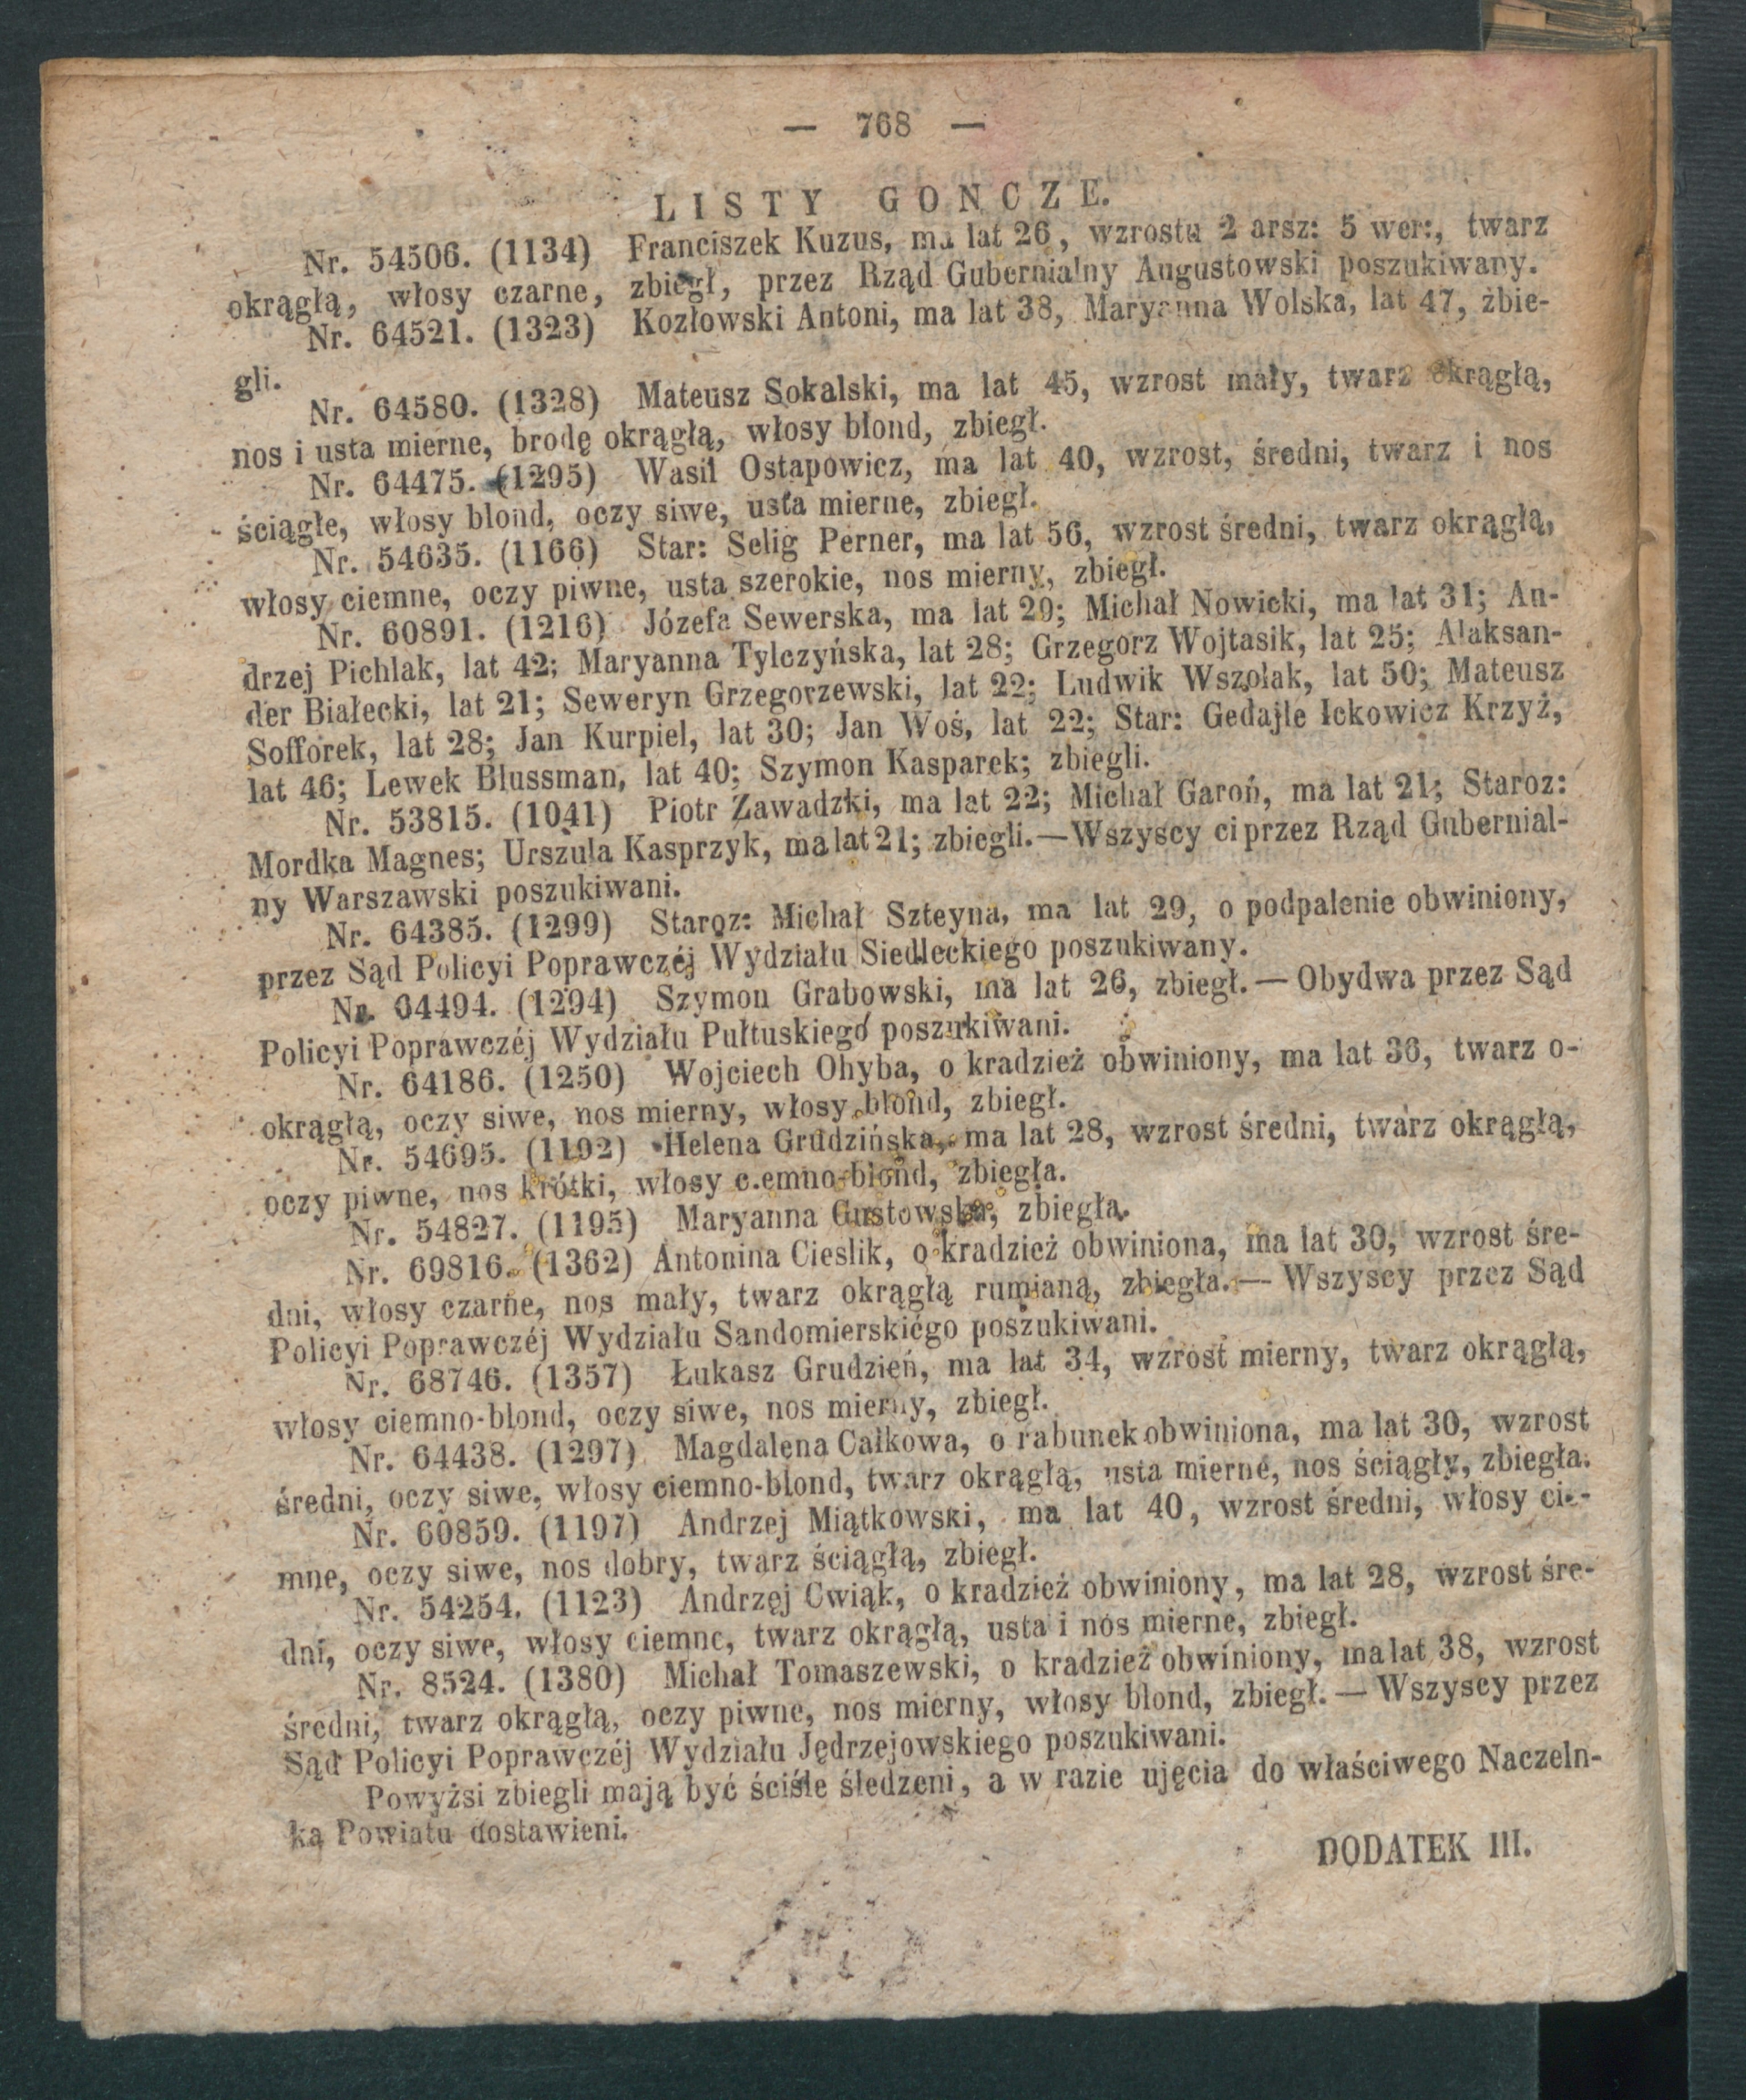 — 768 —
LISTY GONCZE.
Nr. 54506. (1134) Franciszek Kuzus, ma lat 26, wzrostu 2 arsz: 5 wer:, twarz
okrągłą, włosy czarne, zbiegł, przez Rząd Gubernialny Augustowski poszukiwany.
Nr. 64521. (1323) Kozłowski Antoni, ma lat 38, Maryanna Wolska, lat 47, zbie-
gli.
Nr. 64580. (1328) Mateusz Sokalski, ma lat 45, wzrost mały, twarz okrągłą,
nos i usta mierne, brodę okrągłą, włosy blond, zbiegł.
Nr. 64475. (1295) Wasil Ostapowicz, ma lat 40, wzrost, średni, twarz i nos
ściągłe, włosy blond, oczy siwe, usta mierne, zbiegł.
Nr. 54635. (1166) Star: Selig Perner, ma lat 56, wzrost średni, twarz okrągłą,
włosy ciemne, oczy piwne, usta szerokie, nos mierny, zbiegł.
Nr. 60891. (1216) Józefa Sewerska, ma lat 29; Michał Nowicki, ma lat 31; An-
drzej Pichlak, lat 42; Maryanna Tylczyńska, lat 28; Grzegorz Wojtasik, lat 25; Alaksan-
der Białecki, lat 21; Seweryn Grzegorzewski, lat 22; Ludwik Wszolak, lat 50; Mateusz
Sofforek, lat 28; Jan Kurpiel, lat 30; Jan Woś, lat 22; Star: Gedajle Ickowicz Krzyż,
lat 46; Lewek Blussman, lat 40; Szymon Kasparek; zbiegli.
Nr. 53815. (1041) Piotr Zawadzki, ma lat 22; Michał Garoń, ma lat 21; Staroz:
Mordka Magnes; Urszula Kasprzyk, ma lat 21; zbiegli.—Wszyscy ci przez Rząd Gubernial-
ny Warszawski poszukiwani.
Nr. 64385. (1299) Staroz: Michał Szteyna, ma lat 29, o podpalenie obwiniony,
przez Sąd Policyi Poprawczéj Wydziału Siedleckiego poszukiwany.
Nr. 64494. (1294) Szymon Grabowski, ma lat 26, zbiegł.—Obydwa przez Sąd
Policyi Poprawczéj Wydziału Pułtuskiego poszukiwani.
Nr. 64186. (1250) Wojciech Ohyba, o kradzież obwiniony, ma lat 36, twarz o-
okrągłą, oczy siwe, nos mierny, włosy blond, zbiegł.
Nr. 54695. (1192) Helena Grudzińska, ma lat 28, wzrost średni, twarz okrągłą,
oczy piwne, nos krótki, włosy ciemno-blond, zbiegła.
Nr. 54827. (1195) Maryanna Gustowska, zbiegła.
Nr. 69816. (1362) Antonina Cieslik, o kradzież obwiniona, ma lat 30, wzrost śre-
dni, włosy czarne, nos mały, twarz okrągłą rumianą, zbiegła.— Wszyscy przez Sąd
Policyi Poprawczéj Wydziału Sandomierskiégo poszukiwani.
Nr. 68746. (1357) Łukasz Grudzień, ma lat 34, wzrost mierny, twarz okrągłą,
włosy ciemno-blond, oczy siwe, nos mierny, zbiegł.
Nr. 64438. (1297) Magdalena Całkowa, o rabunek obwiniona, ma lat 30, wzrost
średni, oczy siwe, włosy ciemno-blond, twarz okrągłą, usta mierne, nos ściągły, zbiegła.
Nr. 60859. (1197) Andrzej Miątkowski, ma lat 40, wzrost średni, włosy cie-
mne, oczy siwe, nos dobry, twarz ściągłą, zbiegł.
Nr. 54254. (1123) Andrzęj Cwiąk, o kradzież obwiniony, ma lat 28, wzrost śre-
dni, oczy siwe, włosy ciemne, twarz okrągłą, usta i nos mierne, zbiegł.
Nr. 8524. (1380) Michał Tomaszewski, o kradzież obwiniony, ma lat 38, wzrost
średni, twarz okrągłą, oczy piwne, nos mierny, włosy blond, zbiegł.— Wszyscy przez
Sąd Policyi Poprawczéj Wydziału Jędrzejowskiego poszukiwani.
Powyżsi zbiegli mają być ściśle śledzeni, a w razie ujęcia do właściwego Naczeln-
ka Powiatu dostawieni.
DODATEK III.